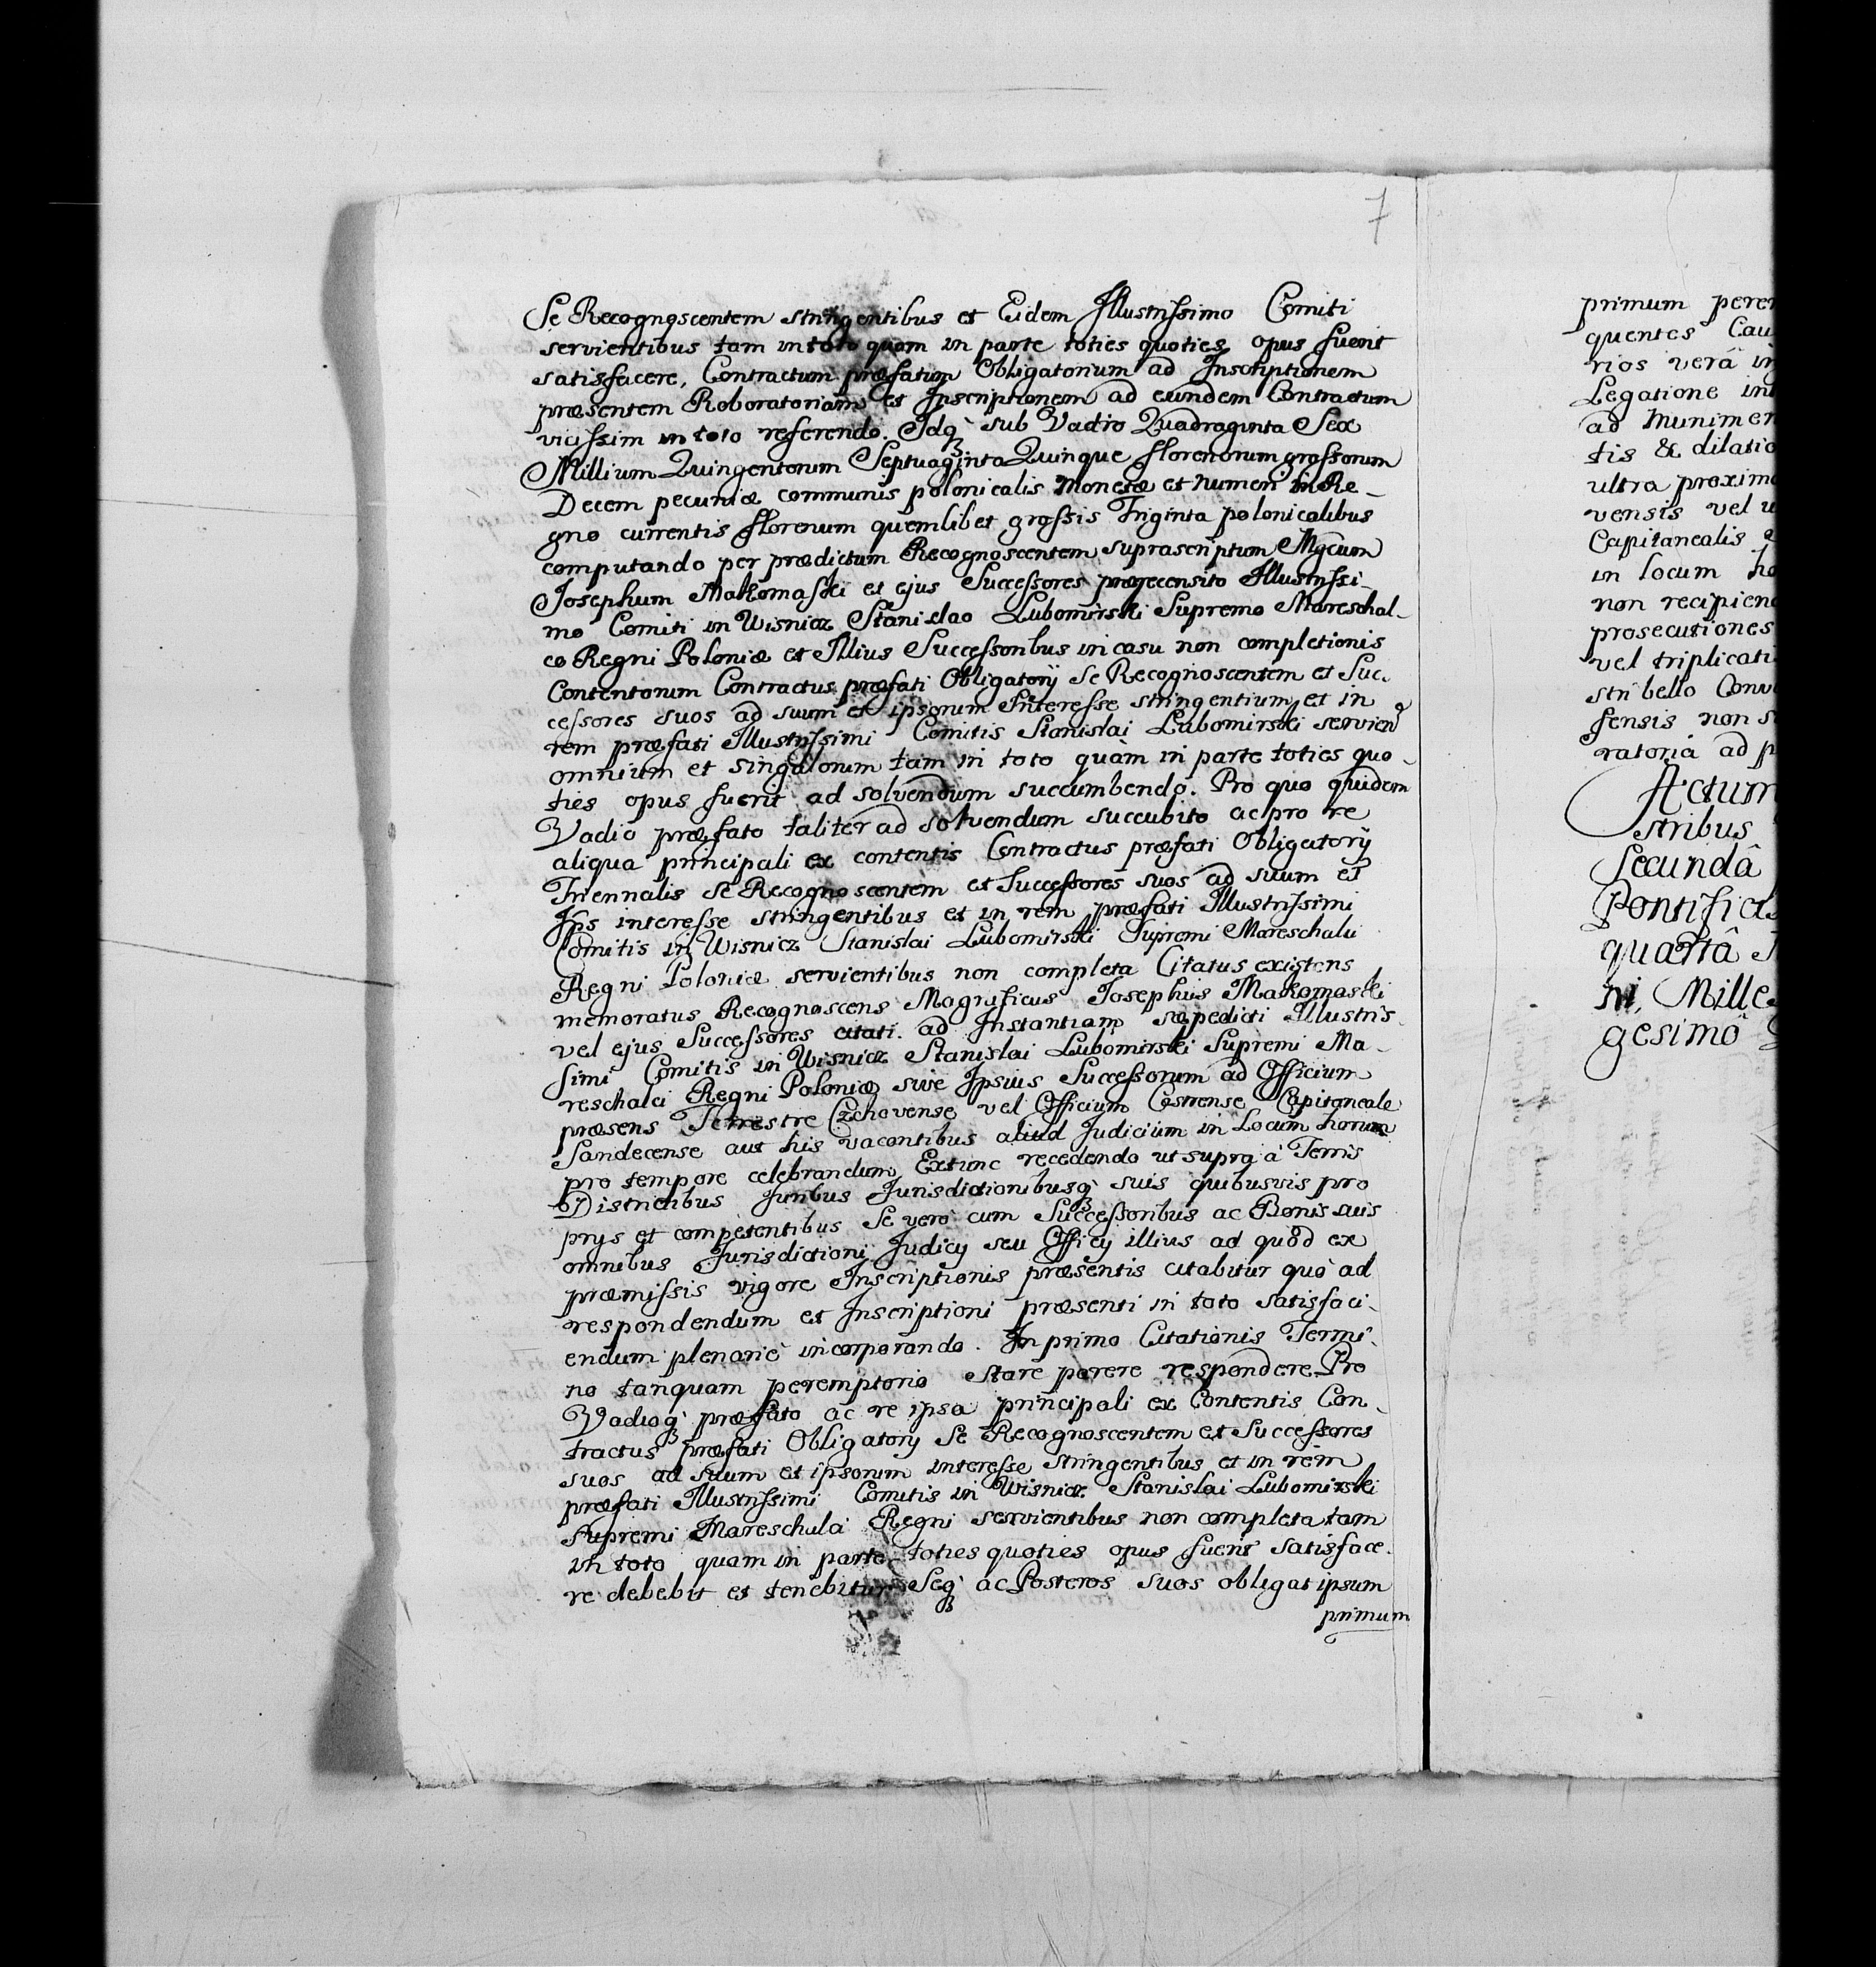 7
Se Recognoscentem stringentibus et Eidem Illustrissimo Comiti
servientibus tam in toto quam in parte toties quoties opus fuerit
satisfacere, Contractum præfatum Obligatorium ad Inscriptionem
præsentem Roboratoriam et Inscriptionem ad eundem Contractum
vicissim in toto referendo. Idq; sub Vadio Quadraginta Sex
Millium Quingentorum Septuaginta Quinque florenorum grossorum
Decem pecuniæ communis polonicalis monetæ et numeri in Re-
gno currentis florenum quemlibet grossis Triginta polonicalibus
computando per prædictum Recognoscentem suprascriptum Mgcum
Josephum Makomaski et ejus Successores prærecensito Illustrissi-
mo Comiti in Wisnicz Stanislao Lubomirski Supremo Mareschal-
co Regni Poloniæ et Illius Successoribus in casu non completionis
Contentorum Contractus præfati Obligatorij se Recognoscentem et Suc-
cessores suos ad suum et ipsorum Interesse stringentium et in
rem præfati Illustrissimi Comitis Stanislai Lubomirski servien
omnium et singulorum tam in toto quàm in parte toties quo-
ties opus fuerit ad solvendum succumbendo. Pro quo quidem
Vadio præfato taliter ad solvendum succubito ac pro re
aliqua principali ex contentis Contractus præfati Obligatorij
Triennalis se Recognoscentem et Successores suos ad suum et
Ips interesse stringentibus et in rem præfati Illustrissimi
Comitis in Wisnicz Stanislai Lubomirski Supremi Mareschalci
Regni Poloniæ servientibus non completa Citatus existens
memoratus Recognoscens Magnificus Josephus Makomaski
vel ejus Successores citati ad Instantiam sæpedicti Illustris-
simi Comitis in Wisnicz Stanislai Lubomirski Supremi Ma-
reschalci Regni Poloniæ sive Ipsius Successorum ad Officium
præsens Terrestre Czchovense vel Officium Castrense Capitaneale
Sandecense aut his vacantibus aliud Judicium in Locum horum
pro tempore celebrandum Extunc recedendo ut supra à Terris
Districtibus Juribus Jurisdictionibusq; suis quibusvis pro
prys et competentibus Se verò cum Successoribus ac Bonis suis
omnibus Jurisdictioni Judicy seu Officy illius ad quod ex
præmissis vigore Inscriptionis præsentis citabitur quò ad
respondendum et Inscriptioni præsenti in toto satisfaci-
endum plenariè incorporando. In primo Citationis Termi-
no tanquam peremptorio stare parere respondere Pro
Vadioq; præfato ac re ipsa principali ex Contentis Con-
tractus præfati Obligatory Se Recognoscentem et Successores
suos ad suum et ipsorum interesse stringentibus et in rem
præfati Illustrissimi Comitis in Wisnicz Stanislai Lubomirski
Supremi Mareschalci Regni servientibus non completa tam
in toto quam in parte toties quoties opus fuerit satisface-
re debebit et tenebitur Seq; ac Posteros suos obligat ipsum
primum
primum
quentes
rios verâ
Legatione
ad
tis & dilatio
ultra
vensis vel
Capitanealis
in locum
non
prosecutiones
vel
stri bello
fensis non
ratoriâ ad
Actum
stribus
Secundâ
quartâ
ni, Mille
gesimô